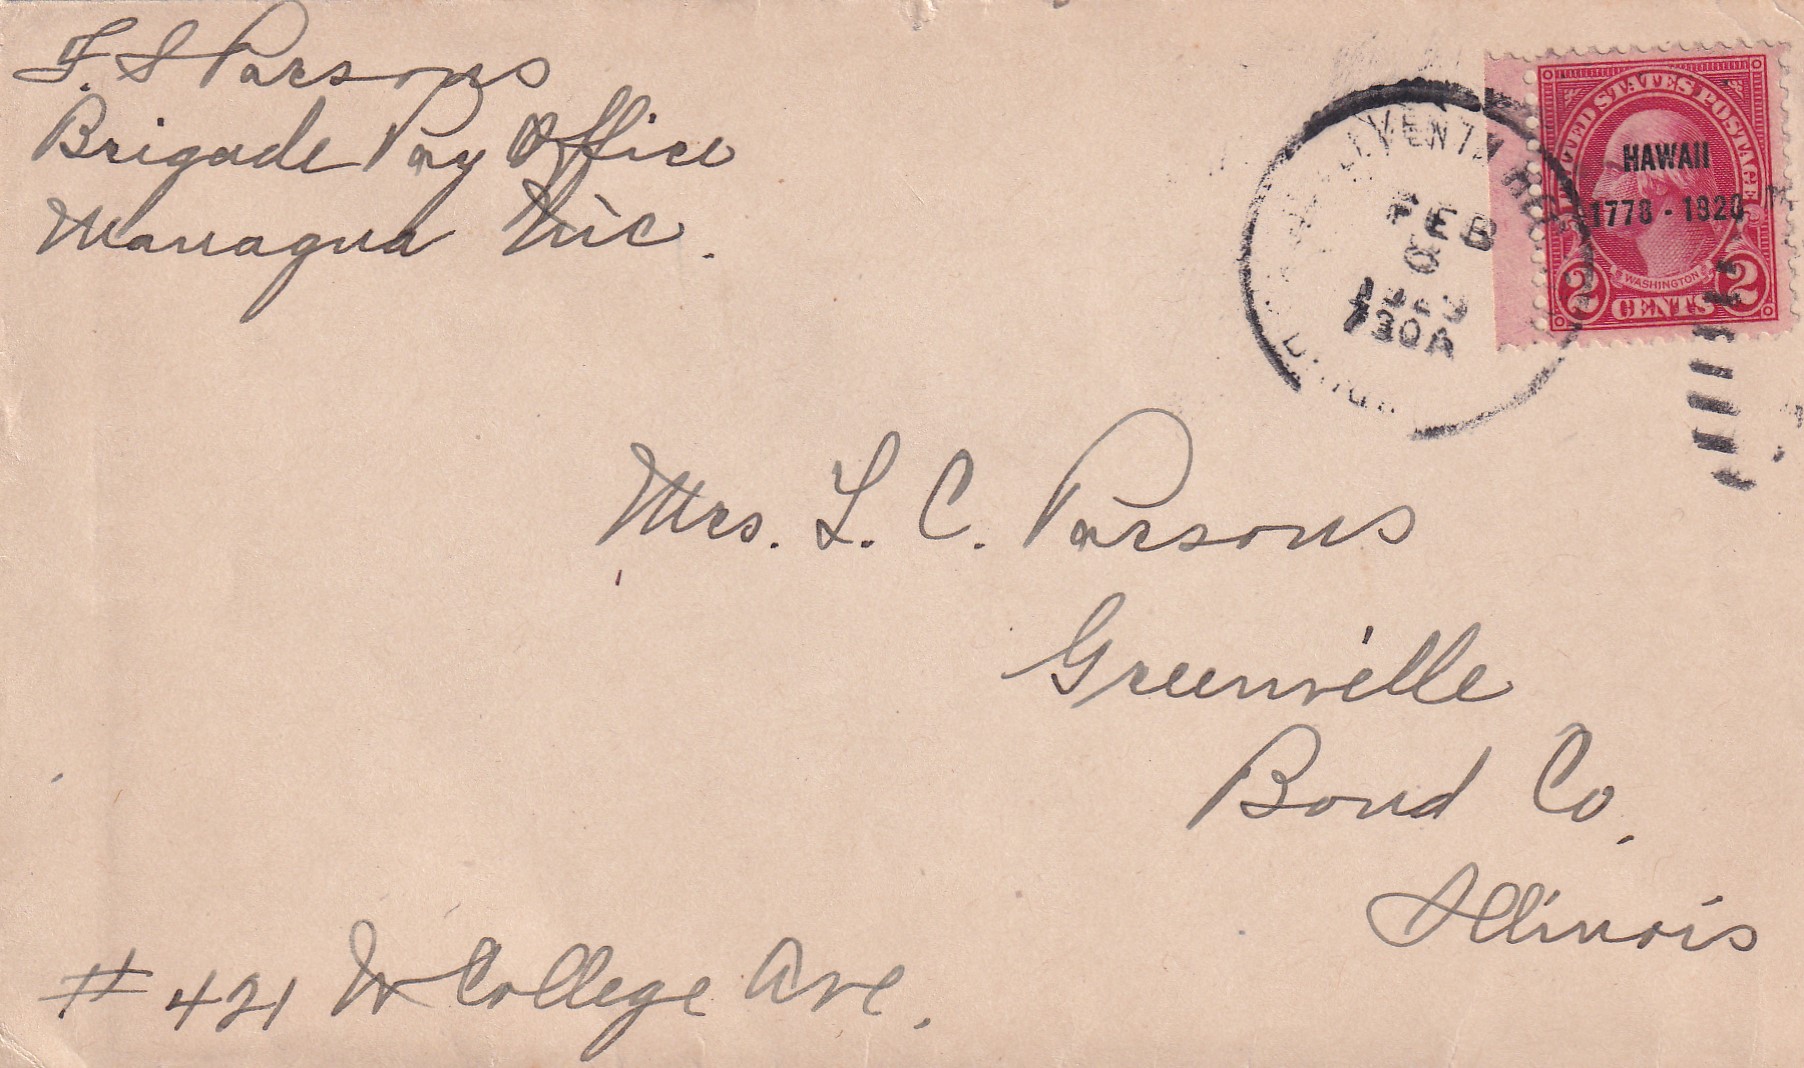 F. S Parsons
Brigade Pay Office
Managua Nic.
FEB
730A
UNITED STATES POSTAGE
HAWAII
1778 - 1928
WASHINGTON
2 CENTS 2
Mrs. L. C. Parsons
Greenville
Bond Co.
Illinois
# 421 W College Ave.